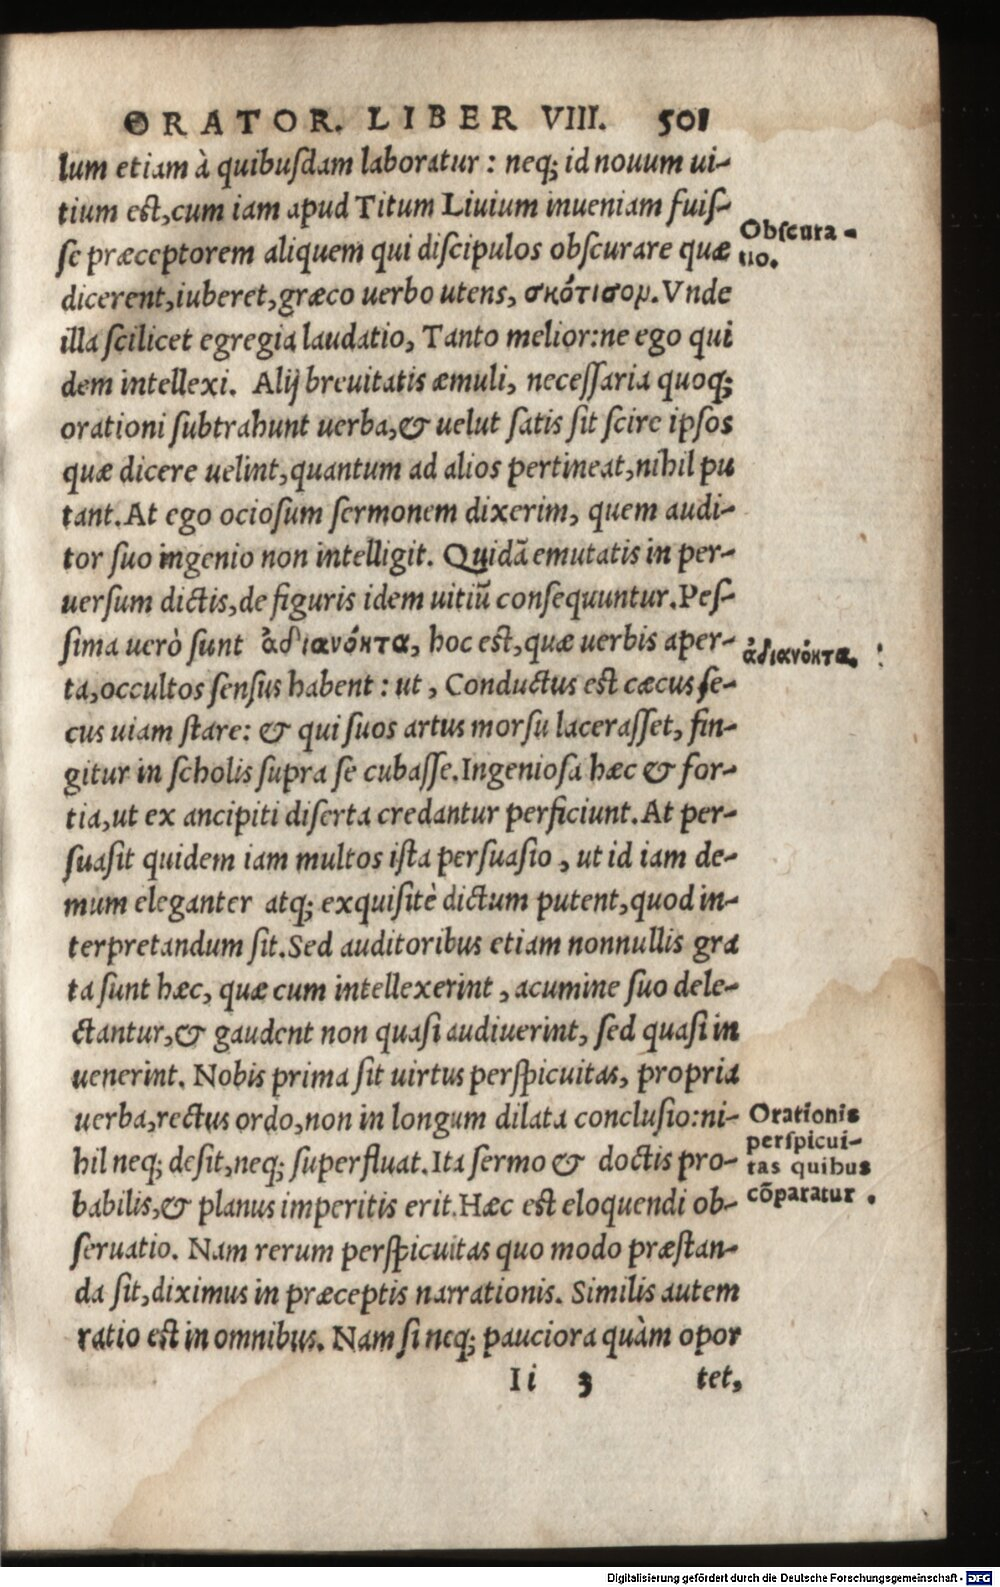 ORATOR. LIBER VIII. 501
lum etiam à quibusdam laboratur : neq; id nouum ui-
tium est, cum iam apud Titum Liuium inueniam fuis-
se præceptorem aliquem qui discipulos obscurare quæ
Obscura-
tio.
dicerent, iuberet, græco uerbo utens, σκότισομ. Vnde
illa scilicet egregia laudatio, Tanto melior: ne ego qui
dem intellexi. Alij breuitatis æmuli, necessaria quoq;
orationi subtrahunt uerba, & uelut satis sit scire ipsos
quæ dicere uelint, quantum ad alios pertineat, nihil pu
tant. At ego ociosum sermonem dixerim, quem audi-
tor suo ingenio non intelligit. Quidã emutatis in per-
uersum dictis, de figuris idem uitiũ consequuntur. Pes-
sima uerò sunt ἀδιανόκτα, hoc est, quæ uerbis aper-
ἀδιανόκτα.
ta, occultos sensus habent : ut, Conductus est cæcus se-
cus uiam stare: & qui suos artus morsu lacerasset, fin-
gitur in scholis supra se cubasse. Ingeniosa hæc & for-
tia, ut ex ancipiti diserta credantur perficiunt. At per-
suasit quidem iam multos ista persuasio, ut id iam de-
mum eleganter atq; exquisitè dictum putent, quod in-
terpretandum sit. Sed auditoribus etiam nonnullis gra
ta sunt hæc, quæ cum intellexerint, acumine suo dele-
ctantur, & gaudent non quasi audiuerint, sed quasi in
uenerint. Nobis prima sit uirtus perspicuitas, propria
uerba, rectus ordo, non in longum dilata conclusio: ni-
hil neq; desit, neq; superfluat. Ita sermo & doctis pro-
babilis, & planus imperitis erit. Hæc est eloquendi ob-
Orationis
perspicui-
tas quibus
cõparatur.
seruatio. Nam rerum perspicuitas quo modo præstan-
da sit, diximus in præceptis narrationis. Similis autem
ratio est in omnibus. Nam si neq; pauciora quàm opor
Ii 3 tet,
Digitalisierung gefördert durch die Deutsche Forschungsgemeinschaft - DFG